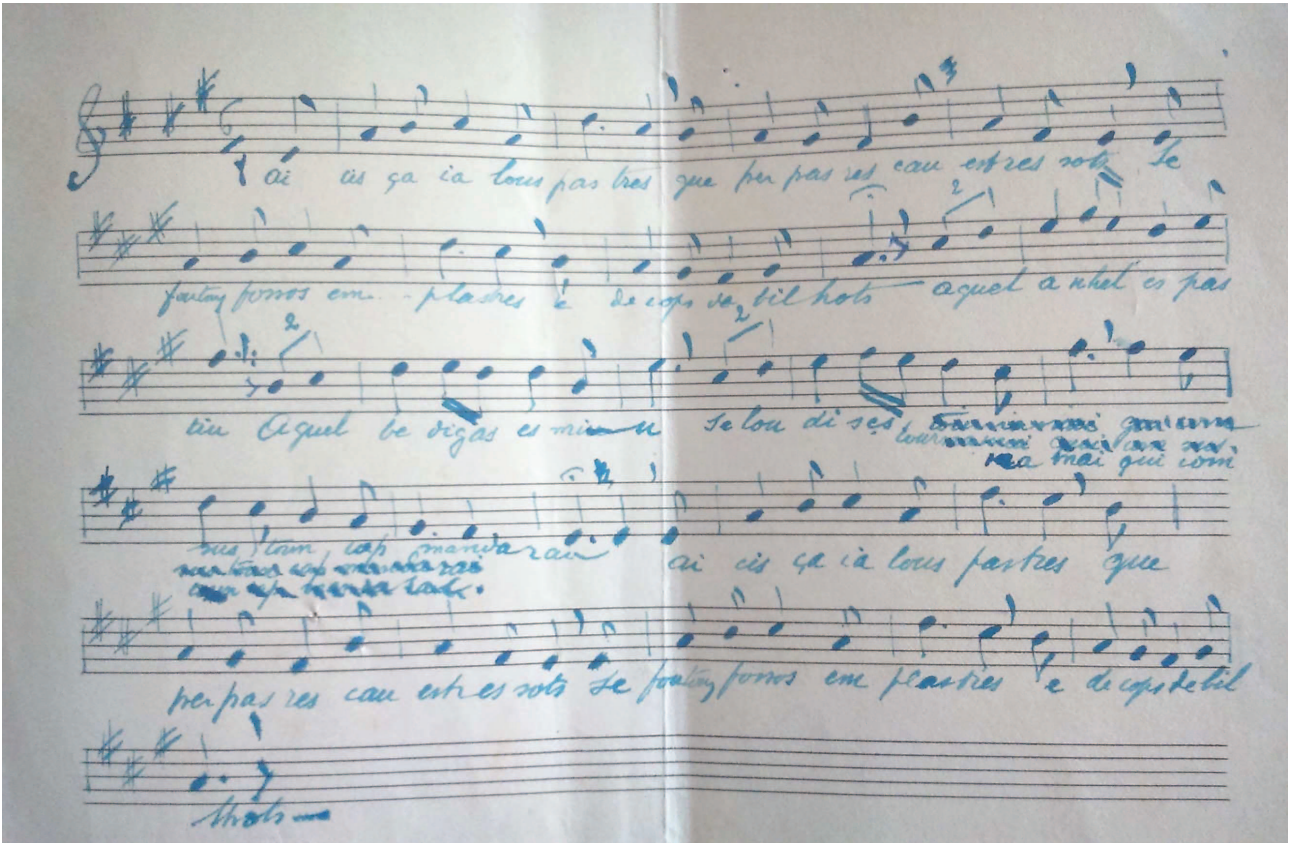 ai cis ça ia lous pas tres que per pas res cau estres sots Se
foutoun forros em - plastres é de cops de bil hots aquel a nhel es pas
tiu Aquel be digas es miu Se lou di ses
ma mai qui com
sus toun cap mandarau ai cis ça ia lous pastres que
per pas res cau estres sots Se foutoun forros em plastres e de cops de bil
hots